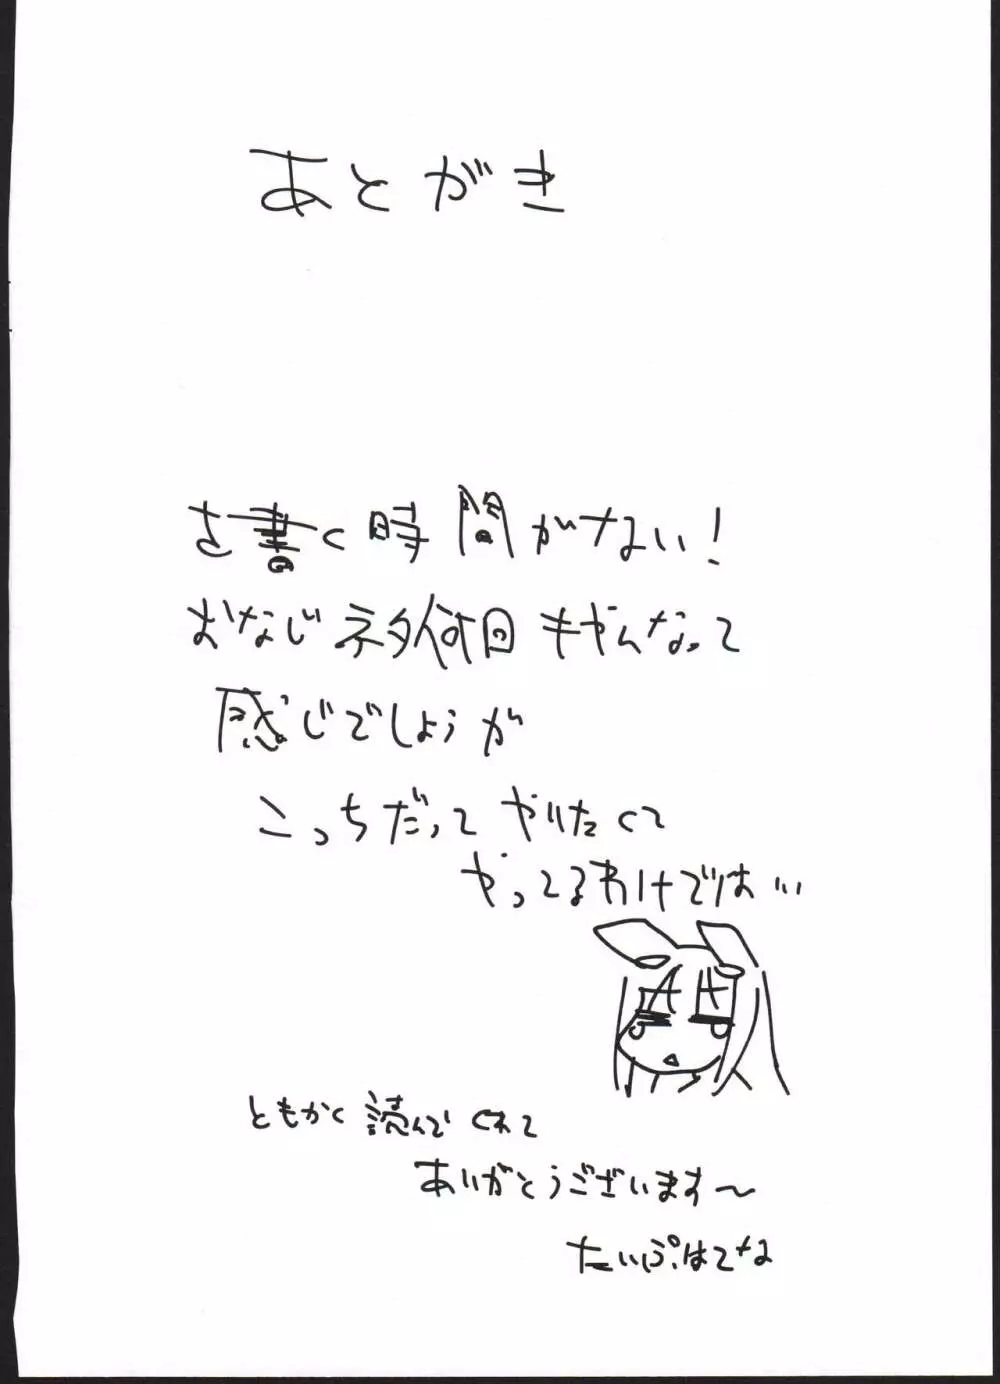 あとがき
を書く時間がない!
おなじネタ何回もやんなって
感じでしょうが
こっちだって やりたくて
やってるわけでは…
ともかく 読んでくれて
ありがとうございます〜
たいぷはてな